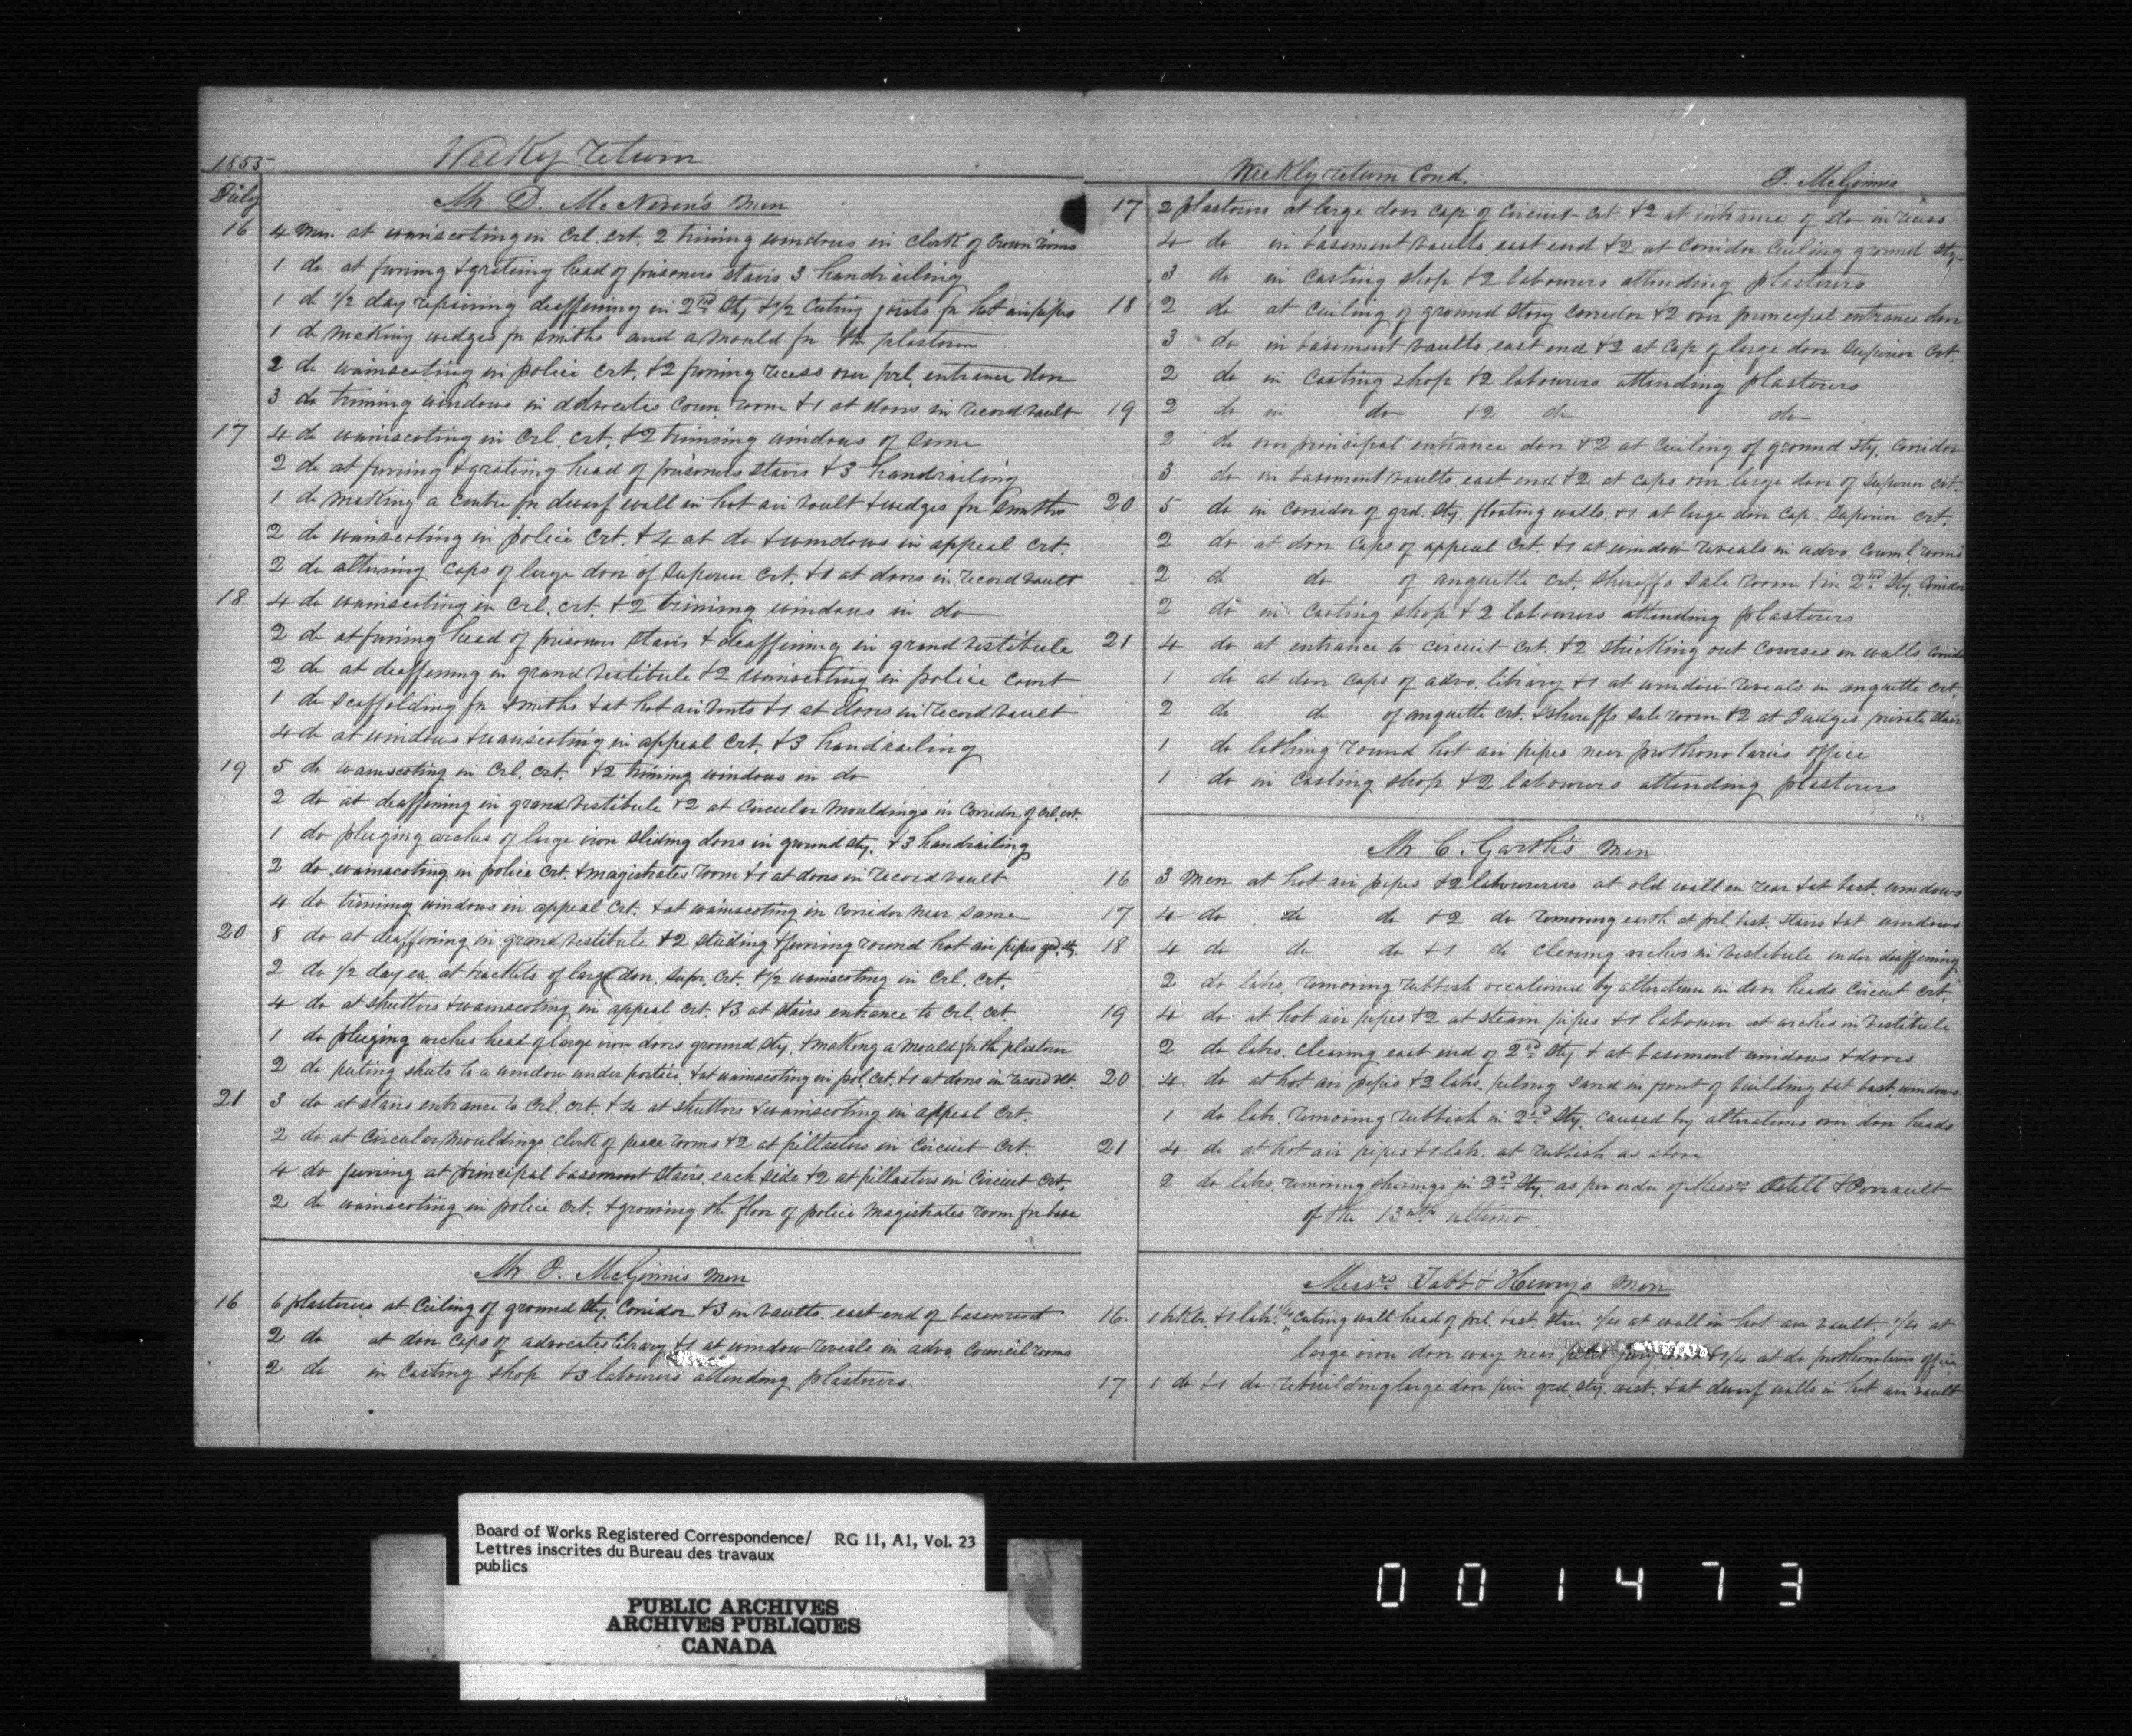 1855 Weekly return
July Mr D. McNeven's men
16 4 Men. at wainscoting in Crl. crt. 2 triming windows in clerk of Crown rooms
1 do at furring & grateing head of prisoners stairs 3 handrailing
1 do 1/2 day repairing deaffening in 2nd Sty &1/2 Cuting joists for hot airpipes
1 do Making wedges for smiths and a Mould for the plasterer
2 do wainscoting in police crt. &2 furring recess over prl. entrance door
3 do triming windows in advocates Coun. room &1 at doors in record vault
17 4 do wainscoting in Crl. crt. &2 trimming windows of Same
2 do at furring & grateing head of prisoners stairs &3 handrailing
1 do Making a Centre for dwarf wall in hot air vault & wedges for Smiths
2 do wainscoting in police Crt. &4 at do & windows in appeal crt.
2 do altering caps of large door of Superior Crt. &1 at doors in record vault
18 4 do wainscoting in Crl. crt. &2 trimimg windows in do
2 do at furring head of prisoners Stairs & deaffening in grand vestibule
2 do at deaffening in grand vestibule &2 wainscoting in police Court
1 do Scaffolding for smiths & at hot air vents &1 at doors in record vault
4 do at windows & wainscoting in appeal Crt. &3 handrailing
19 5 do wainscoting in Crl. crt. &2 triming windows in do
2 do at deaffening in grand vestibule &2 at Circular Mouldings in Corridor of Crl. crt.
1 do pluging arches of large iron Sliding doors in ground Sty. &3 handrailing
2 do wainscoting in police Crt. & magistrates room &1 at doors in record vault
4 do triming windows in appeal Crt. & at wainscoting in Corridor near Same
20 8 do at deaffening in grand vestibule &2 studing & furring round hot air pipes grd. sty.
2 do 1/2 day ea. at brackets of large door, Supr. Crt. &1/2 wainscoting in Crl. Crt.
4 do at shutters & wainscoting in appeal Crt. &3 at stairs entrance to Crl. Crt.
1 do pluging arches head of large iron doors ground sty. & making a mould for the plasterer
2 do puting shuts to a window under portico, & at wainscoting in pol. Crt. &1 at doors in record vlt.
21 3 do at stairs entrance to Crl. crt. &4 at shutters & wainscoting in appeal Crt.
2 do at Circular Mouldings clerk of peace rooms &2 at pillasters in Circuit Crt.
4 do furring at principal basement Stairs each side &2 at pillasters in Circuit Crt.
2 do wainscoting in police Crt. & grooving the floor of police Magistrates room for base
Mr J. McGinnis men
16 6 plasterers at Ceiling of ground Sty. Corridor &3 in vaults east end of basement
2 do at door caps of advocates library &1 at window reveals in advo. Council rooms
2 do in Casting shop &3 labourers attending plasterers
Weekly return Cond. J. McGinnis
17 2 plasterers at large door cap of Circuit Crt. &2 at entrance of do in recess
4 do in basement vaults east end &2 at Corridor Ceiling ground Sty.
3 do in Casting shop &2 labourers attending plasterers
18 2 do at Ceiling of ground Story Corridor &2 over principal entrance door
3 do in basement vaults east end &2 at Cap of large door Superior Crt.
2 do in Casting shop &2 labourers attending plasterers
19 2 do in do &2 do do
2 do over principal entrance door &2 at Ceiling of ground Sty. Corridor
3 do in basement vaults east end &2 at caps over large door of Superior Crt.
20 5 do in Corridor of grd. Sty. floating walls. &1 at large door Cap. Superior Crt.
2 do at door Caps of appeal Crt. &1 at window reveals in advo. Counl. rooms
2 do do of anquette crt. Sheriffs Sale room & in 2nd Sty. Corridor
2 do in Casting shop &2 labourers attending plasterers
21 4 do at entrance to Circuit Crt. &2 Striking out Courses on walls
1 do at door Caps of advo. library &1 at window reveals in anquette Crt.
2 do do of anquette Crt. & Sheriffs Sale room &2 at Judges private Stair
1 do lathing round hot air pipes near prothonotaries office
1 do in Casting shop &2 labourers attending plasterers
Mr C. Garth's Men
16 3 Men at hot air pipes &2 labourers at old wall in rear & at bast. windows
17 4 do do do &2 do removing earth at prl. bast. Stairs & at windows
18 4 do do do &1 do Clearing arches in vestibule under deaffening
2 do labs. removing rubbish occasioned by alterations in door heads Circuit Crt.
19 4 do at hot air pipes &2 at steam pipes &1 labourer at arches in vestibule
2 do labs. clearing east end of 2nd Sty & at basement windows & doors
20 4 do at hot air pipes &2 labs. piling Sand in front of building & at bast. windows
1 do lab. removing rubbish in 2nd Sty. caused by alterations over door heads
21 4 do at hot air pipes &1 lab. at rubbish as above
2 do labs. removing shavings in 2nd Sty. as per order of Messrs Ostell & Perrault
of the 13th ultimo.
Messrs Tabb & Henrys Men
16. 1 bklr. &1 lab. 1/4 Cuting wall head of prl. bast. Stair 1/4 at wall in hot air vault. 1/4 at
large iron door way near petit jury room &1/4 at do prothonotaries office
17 1 do &1 do rebuilding large door pier grd. sty. west. & at dwarf walls in hot air vault
Board of Works Registered Correspondence/ RG 11, A1, Vol. 23
Lettres inscrites du Bureau des travaux
publics
PUBLIC ARCHIVES
ARCHIVES PUBLIQUES
CANADA
001473